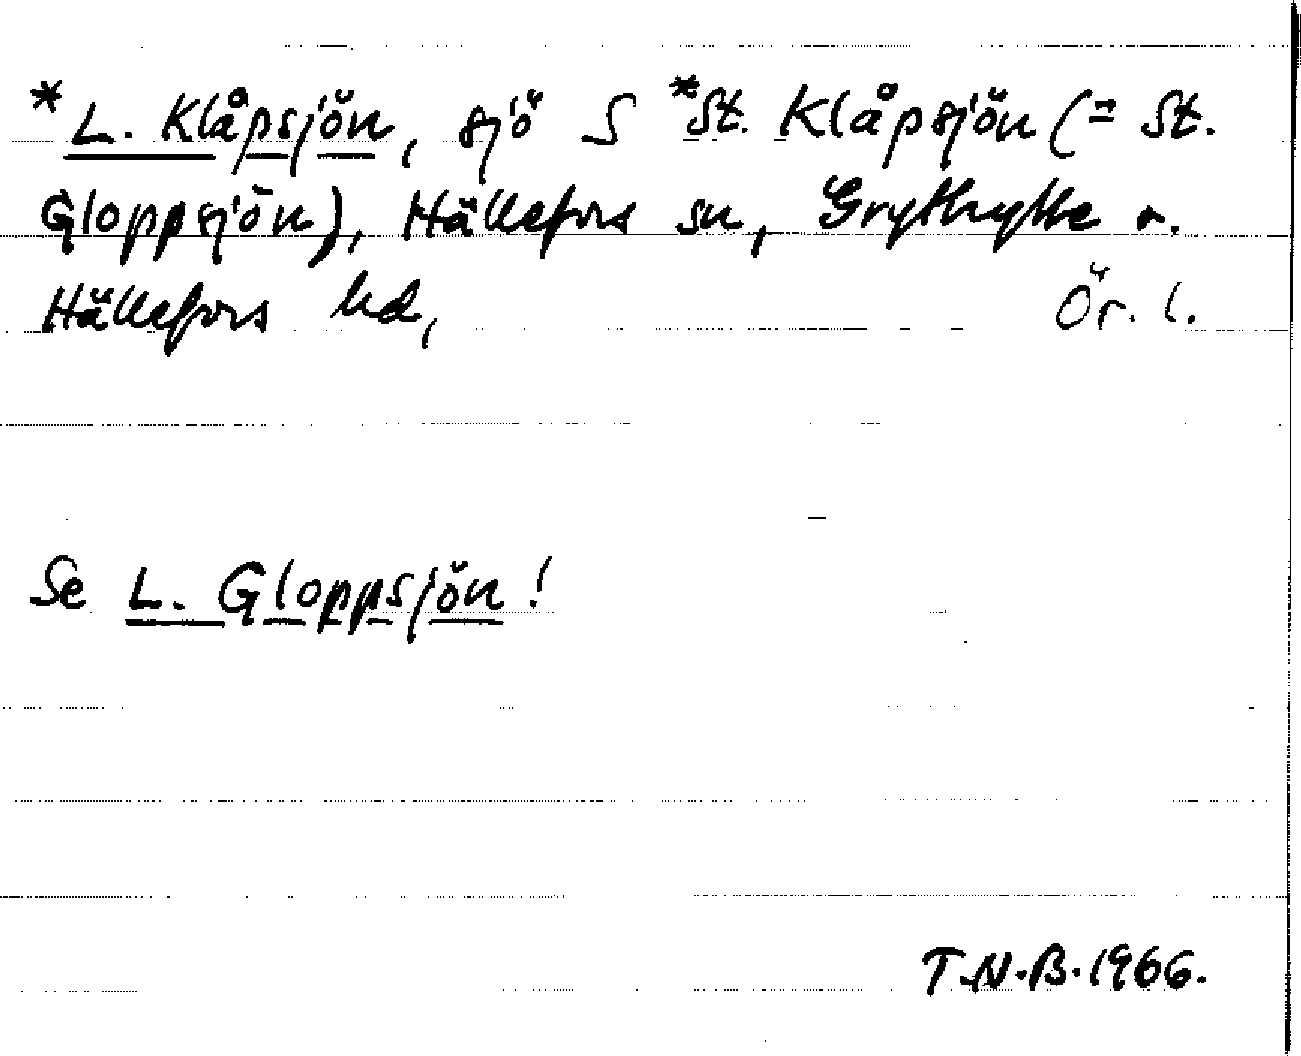 *L. Klåpsjön, sjö S *St. Klåpsjön (= St.
Gloppsjön), Hällefors sn, Grythytte o.
Hällefors hd, Ör. l.
Se L. Gloppsjön!
T.N.B. 1966.